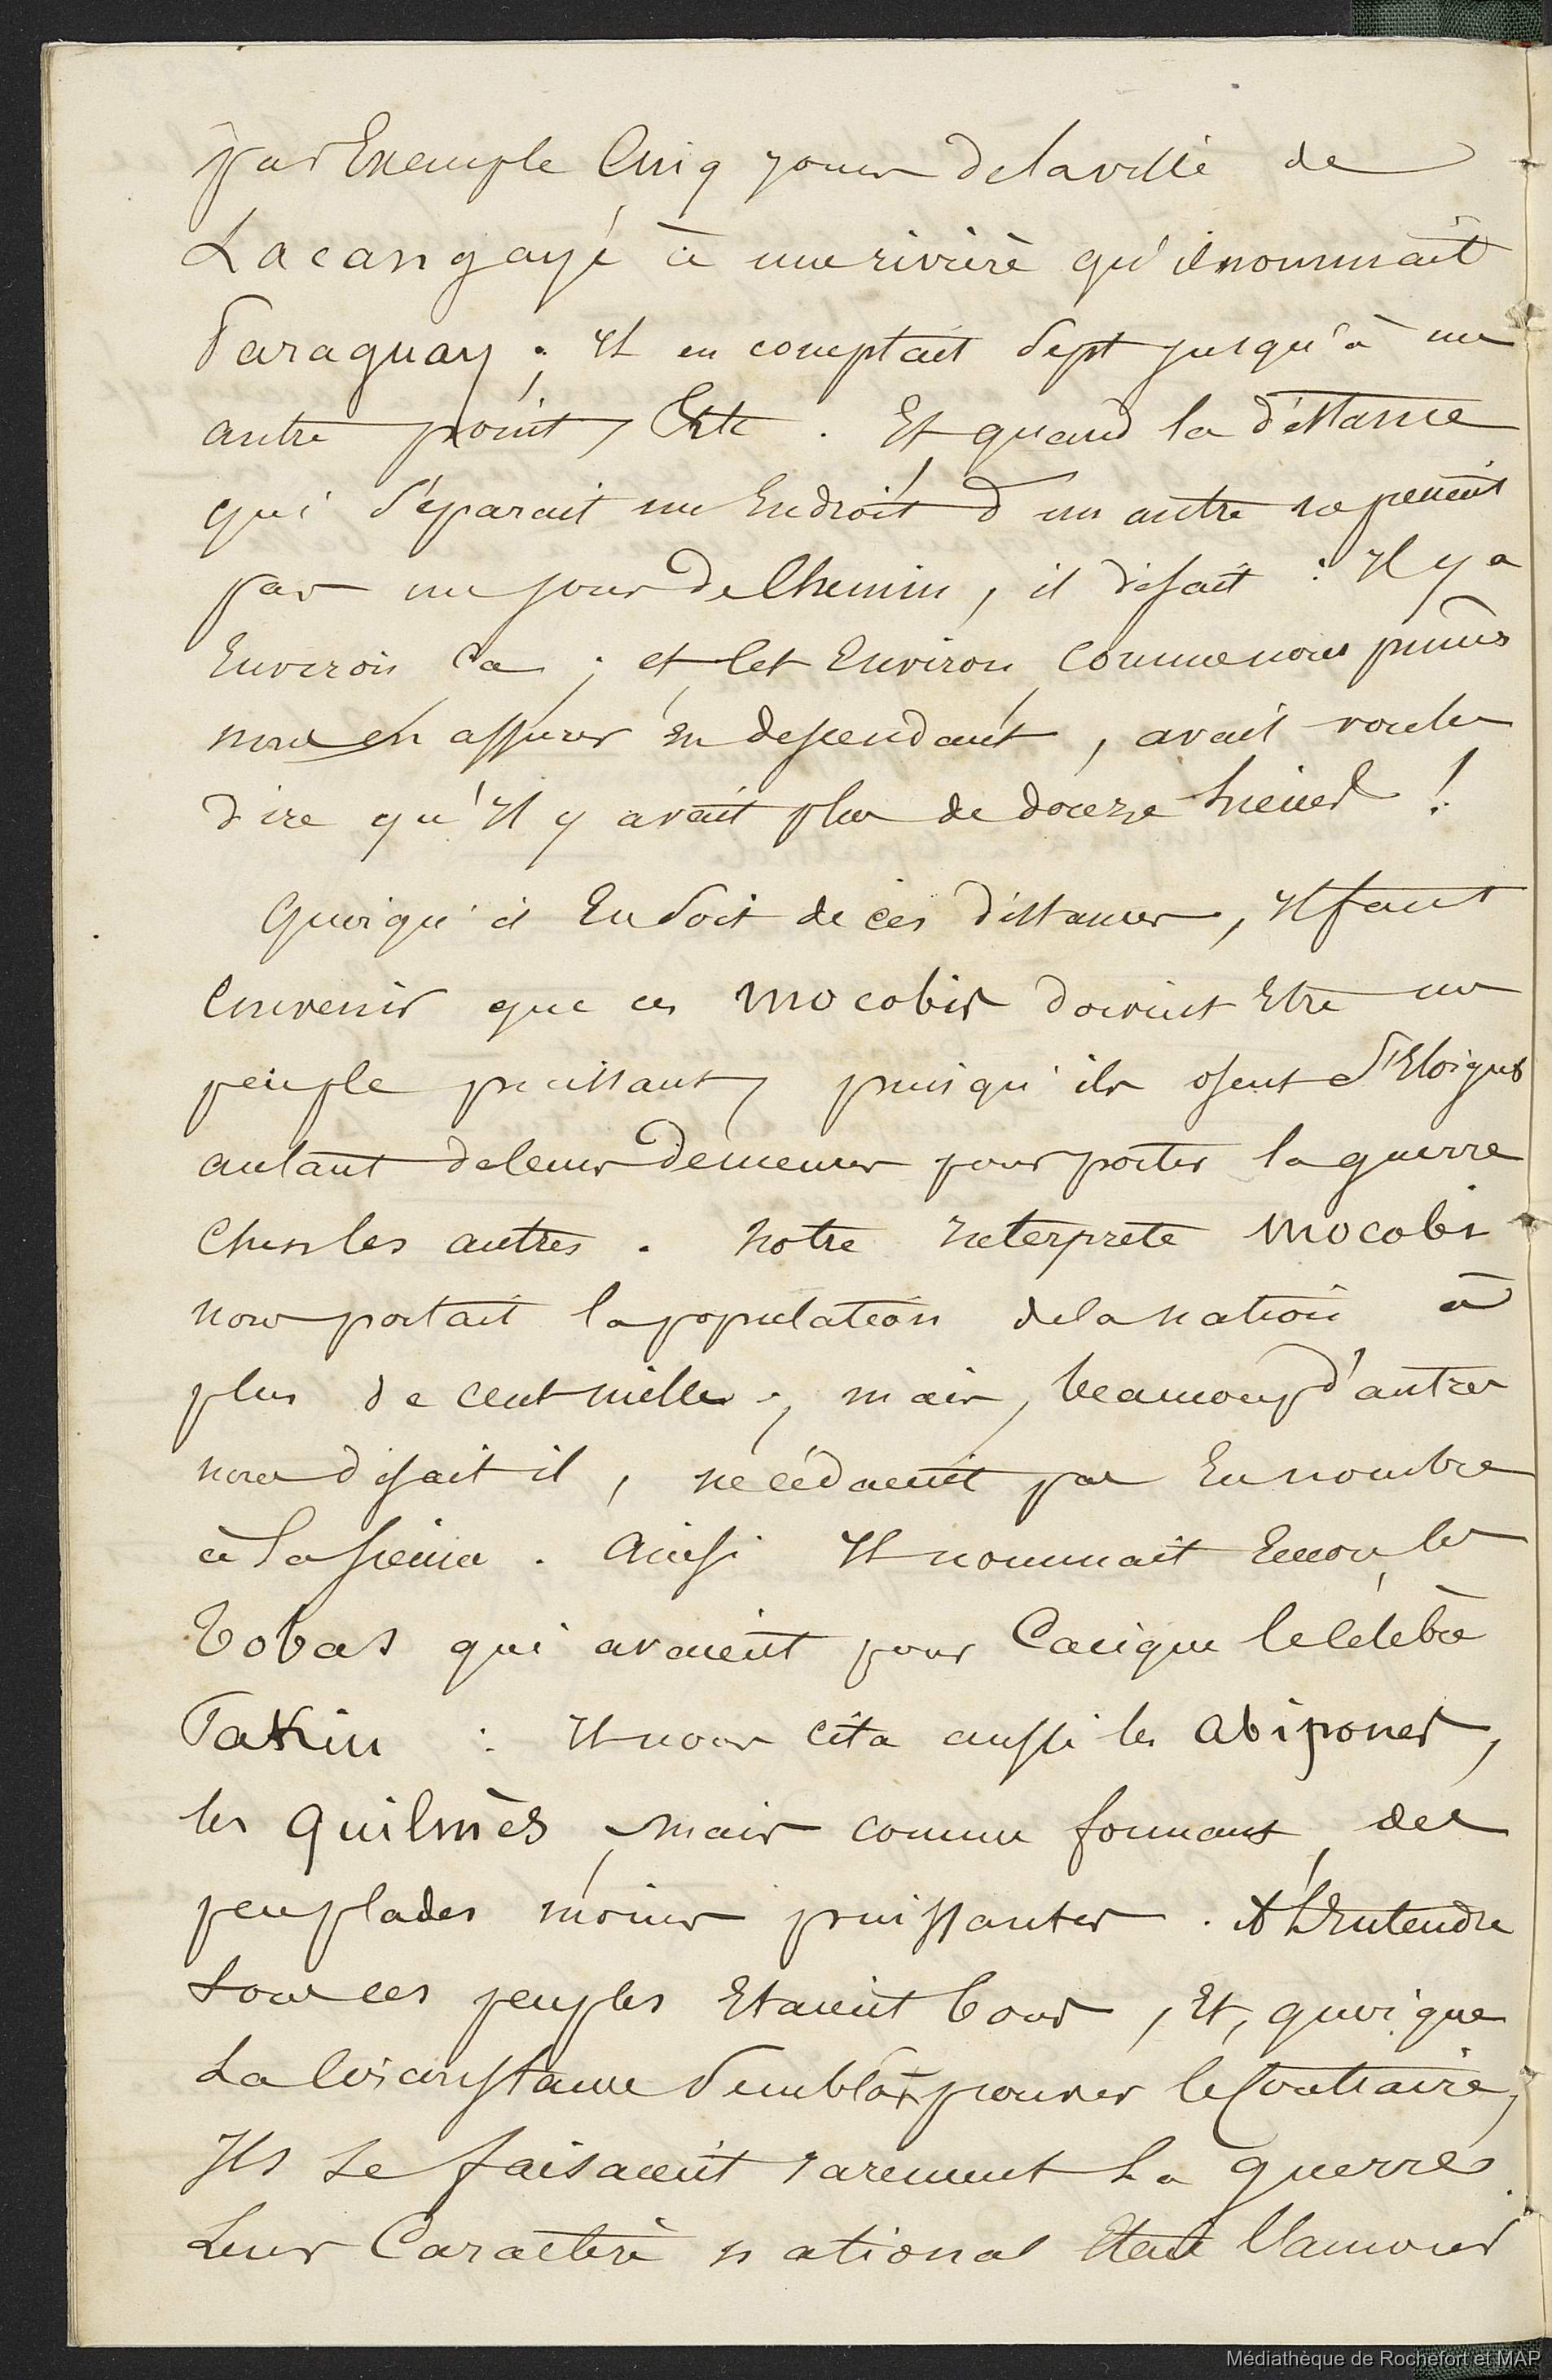 par Exemple Cinq jours de la ville de
Lacangayé à une rivière qu'il nommait
Paraguay ; Il en comptait Sept jusqu'à un
autre point, Etc . Et quand la distance
qui Séparait un Endroit d'un autre ne prenait
pas un jour de Chemin, il disait : Il y a
Environ Ca ; et Cet Environ, Comme nous pûmes
nous en assurer En descendant, avait voulu
dire qu'Il y avait plus de douze lieues !
Quoiqu'il En Soit de ces distances, Il faut
Convenir que ces Mocobis doivent Etre un
peuple puissant, puisqu'ils osent S'Eloigner
autant de leurs demeures pour porter la guerre
Chez les autres . Notre Interprete Mocobi
nous portait la population de la nation à
plus de cent mille ; mais, beaucoup d'autres
nous disait il, ne cédaient pas En nombre
à la Sienne . Ainsi Il nommait Encore les
Tobas qui avaient pour Cacique le Célèbre
Takin : Il nous cita aussi les Abipones,
les Quilmès, mais comme formant des
peuplades moins puissantes . A L'Entendre
tous ces peuples Etaient bons, Et, quoique
La Circonstance Semblât prouver le Contraire,
Ils se faisaient rarement La guerre.
Leur Caractère national Etait l'amour
Médiathèque de Rochefort et MAP